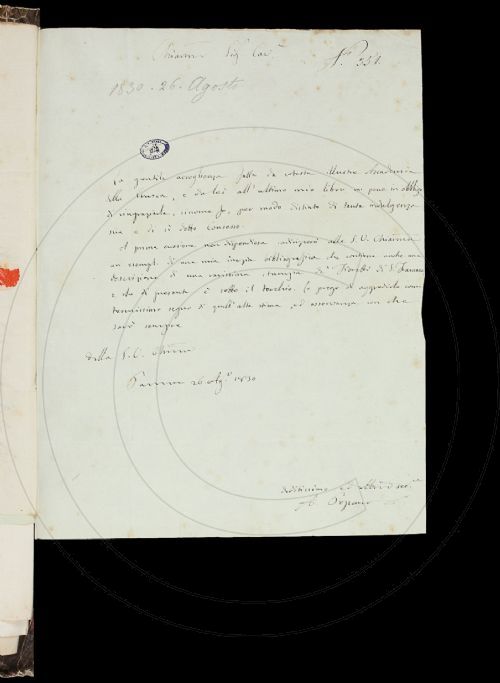 Chiarmo Sig Cavre
N. 351.
1830. 26. Agosto
La gentile accoglienza fatta da cotesta illustre Accademia
della Crusca, e da Lei all' ultimo mio libro mi pone in obbligo
di ringraziarla, siccome fo, per modo distinto di tanta indulgenza
sua e di sì dotto consesso.
A prima occasione non disperdosa indirizzerò alla S. V. Chiarma
un esempl. di una mia inezia bibliografica che contiene anche una
descrizione di una rarissima stampa di' Fioretti di S. Francesco
e che di presente è sotto il torchio. La prego di aggradirla come
tenuissimo segno di quell' alta stima, ed osservanza con che
sarò sempre
della S. V. Chiarma
Parma 26 Ag.o 1830
Devotissimo ed obbl.o ser.e
A. Pezzana